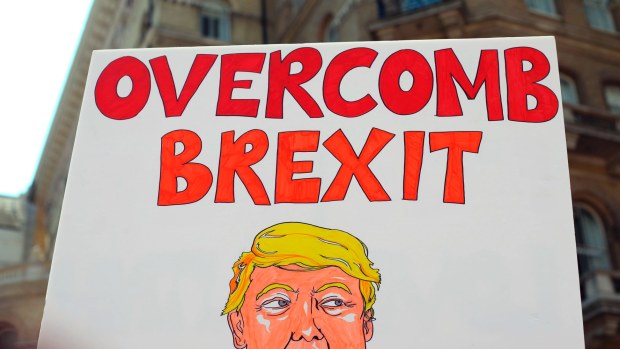 OVERCOMB
BREXIT